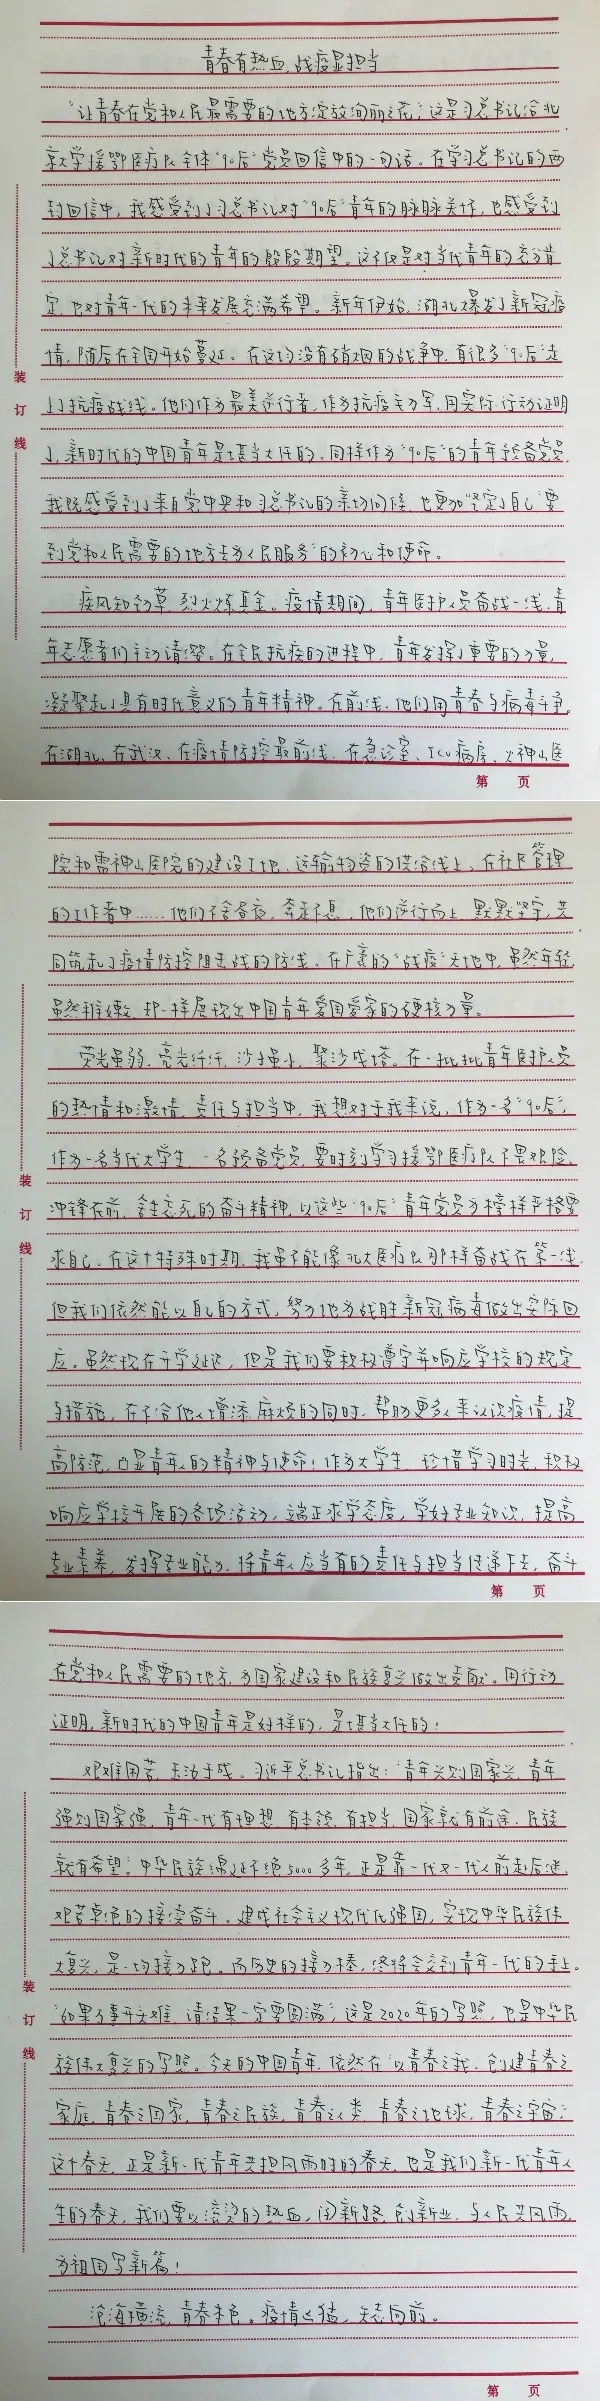 青春有热血,战疫显担当
“让青春在党和人民最需要的地方绽放绚丽之花”这是习总书记给北
京大学援鄂医疗队全体“90后”党员回信中的一句话。在学习总书记的两
封回信中,我感受到了习总书记对“90后”青年的脉脉关怀,也感受到
了总书记对新时代的青年的殷殷期望。这不仅是对当代青年的充分肯
定,也对青年一代的未来发展充满希望。新年伊始,湖北爆发了新冠疫
情,随后在全国开始蔓延。在这场没有硝烟的战争中,有很多“90后”走
上了抗疫战线。他们作为最美逆行者,作为抗疫主力军,用实际行动证明
了,新时代的中国青年是堪当大任的。同样作为“90后”的青年预备党员,
我既感受到了来自党中央和习总书记的亲切问候,也更加“坚定了自己”要
到党和人民需要的地方去为人民服务”的初心和使命。
疾风知劲草,烈火炼真金。疫情期间,青年医护人员奋战一线,青
年志愿者们主动请缨。在全民抗疫的进程中,青年发挥了重要的力量,
凝聚起了具有时代意义的青年精神。在前线,他们用青春与病毒斗争。
在湖北、在武汉、在疫情防控最前线,在急诊室、ICU病房、火神山医
第 页
院和雷神山医院的建设工地、运输物资的供给线上、在社区管理
的工作者中……他们不舍昼夜,奔走不息,他们逆行而上,默默坚守,共
同筑起了疫情防控阻击战的防线。在广袤的“战疫”天地中,虽然年轻,
虽然稚嫩,却一样展现出中国青年爱国爱家的硬核力量。
荧光虽弱,亮光纤纤,沙子虽小,聚沙成塔。在一批批青年医护人员
的热情和激情,责任与担当中,我想对于我来说,作为一名“90后”,
作为一名当代大学生,一名预备党员,要时刻学习援鄂医疗队不畏艰险、
冲锋在前、舍生忘死的奋斗精神,以这些“90后”青年党员为榜样严格要
求自己。在这个特殊时期,我虽不能像北大医疗队那样奋战在第一线,
但我们依然能以自己的方式,努力地为战胜新冠病毒做出实际回
应。虽然现在开学延迟,但是我们要积极遵守并响应学校的规定
与措施,在不给他人增添麻烦的同时,帮助更多人来认识疫情,提
高防范,凸显青年人的精神与使命!作为大学生,珍惜学习时光,积极
响应学校开展的各项活动,端正求学态度,学好专业知识,提高
专业素养,发挥专业能力,将青年人应当有的责任与担当传递下去,奋斗
第 页
在党和人民需要的地方,为国家建设和民族复兴做出贡献。用行动
证明,新时代的中国青年是好样的,是堪当大任的!
艰难困苦,玉汝于成。习近平总书记指出:“青年兴则国家兴,青年
强则国家强,青年一代有理想,有本领,有担当,国家就有前途,民族
就有希望。”中华民族绵延不绝5000多年,正是靠一代又一代人前赴后继,
艰苦卓绝的接续奋斗。建成社会主义现代化强国,实现中华民族伟
大复兴,是一场接力跑。而历史的接力棒,终将会交到青年一代的手上。
“如果万事开头难,请结果一定要圆满”,这是2020年的写照,也是中华民
族伟大复兴的写照。今天的中国青年,依然在“以青春之我,创建青春之
家庭,青春之国家,青春之民族,青春之人类,青春之地球,青春之宇宙;
这个春天,正是新一代青年共担风雨时的春天,也是我们新一代青年人
生的春天,我们要以滚烫的热血,闯新路,创新业,与人民共风雨,
为祖国写新篇!
沧海横流,青春本色。疫情必猛,矢志向前。
第 页
装
订
线
装
订
线
装
订
线